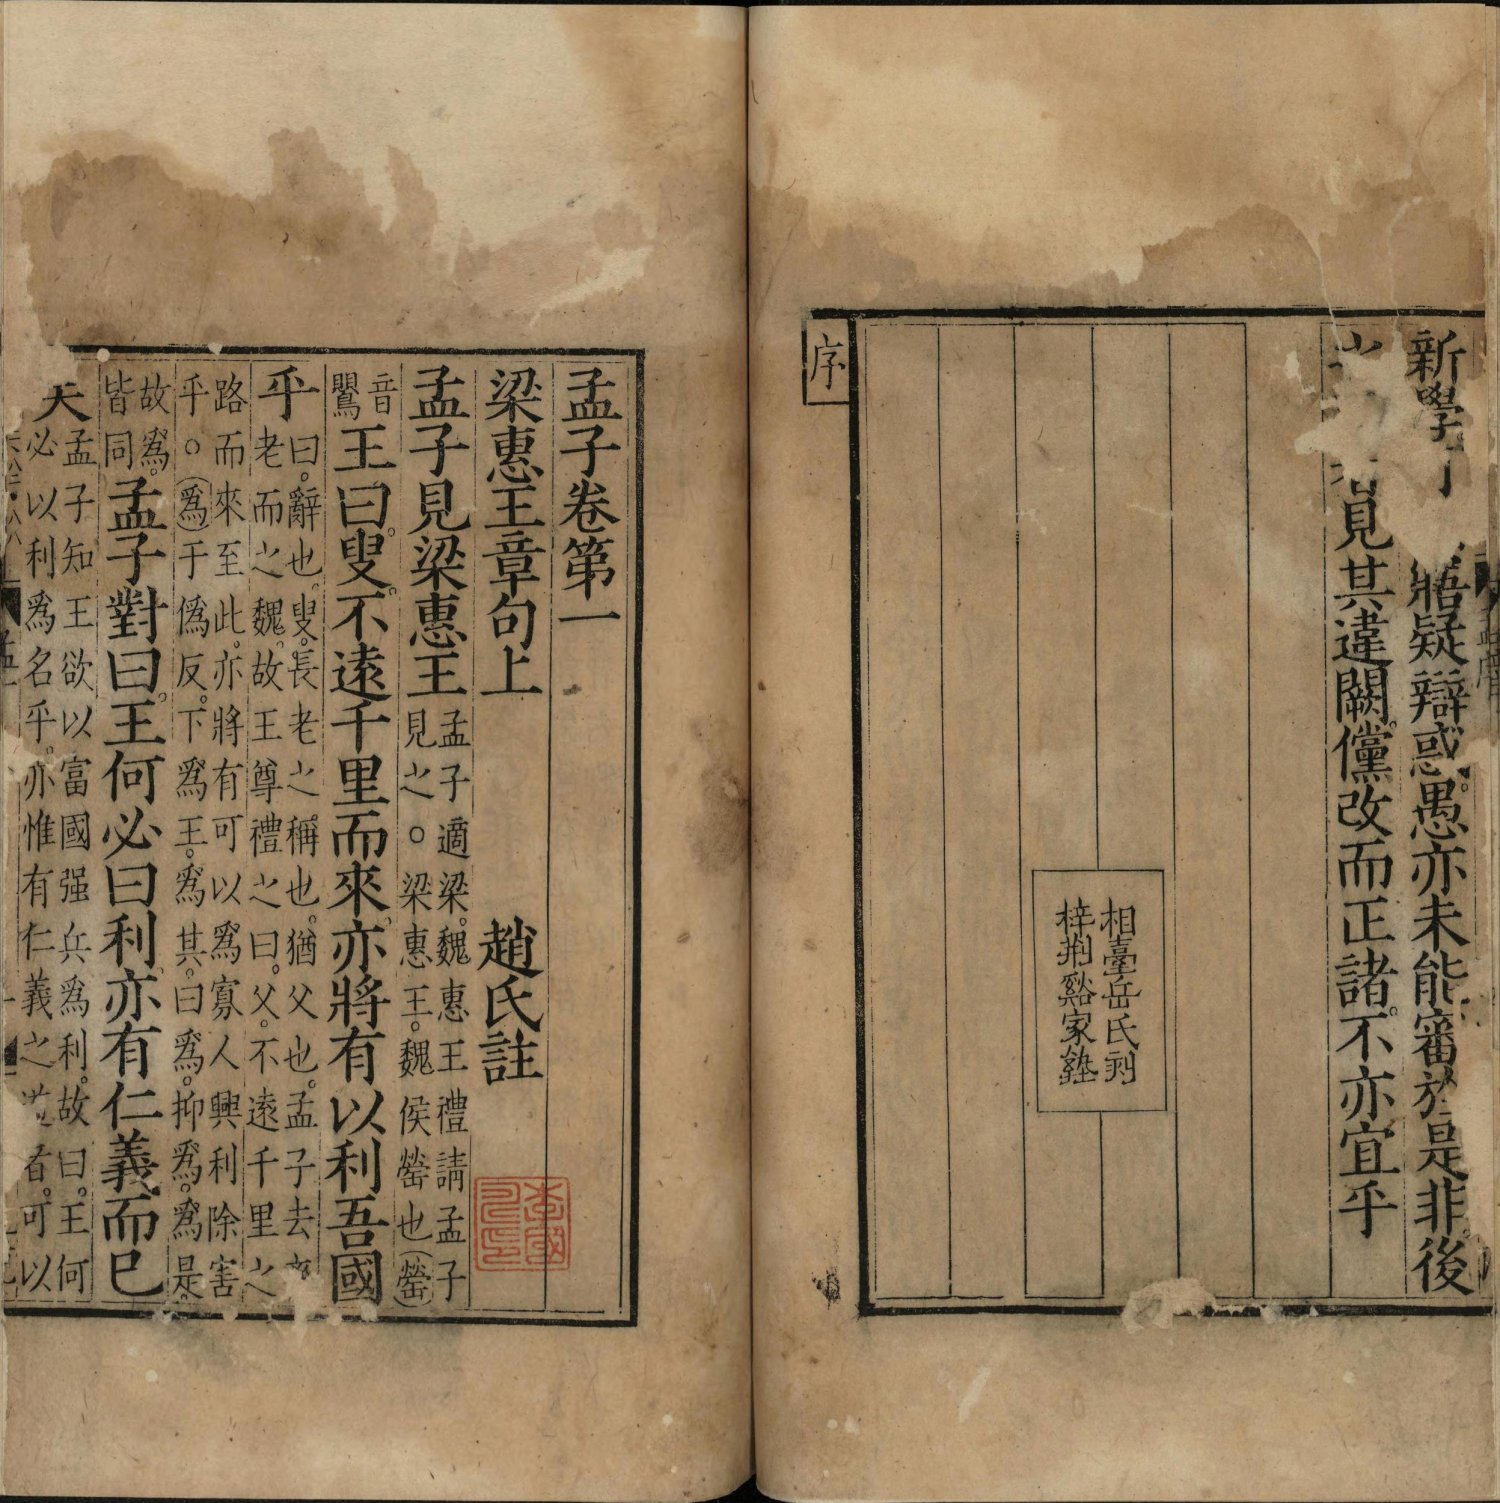 新學
疑辯惑愚亦未能審於是非後
見其違闕儻改而正諸不亦宜乎
相臺岳氏刻
梓荆谿家塾
序
孟子卷第一
梁惠王章句上 趙氏註
孟子見梁惠王
孟子適梁魏惠王禮請孟子
見之○梁惠王魏侯罃也罃
音
鸎
王曰叟不遠千里而來亦將有以利吾國
乎
曰辭也叟長老之稱也猶父也孟子去
老而之魏故王尊禮之曰父不遠千里之
路而來至此亦將有可以爲寡人興利除害
乎○爲于僞反下爲王爲其曰爲抑爲爲是
故爲
皆同
孟子對曰王何必曰利亦有仁義而已
矣
孟子知王欲以富國强兵爲利故曰王何
必以利爲名乎亦惟有仁義之道者可以